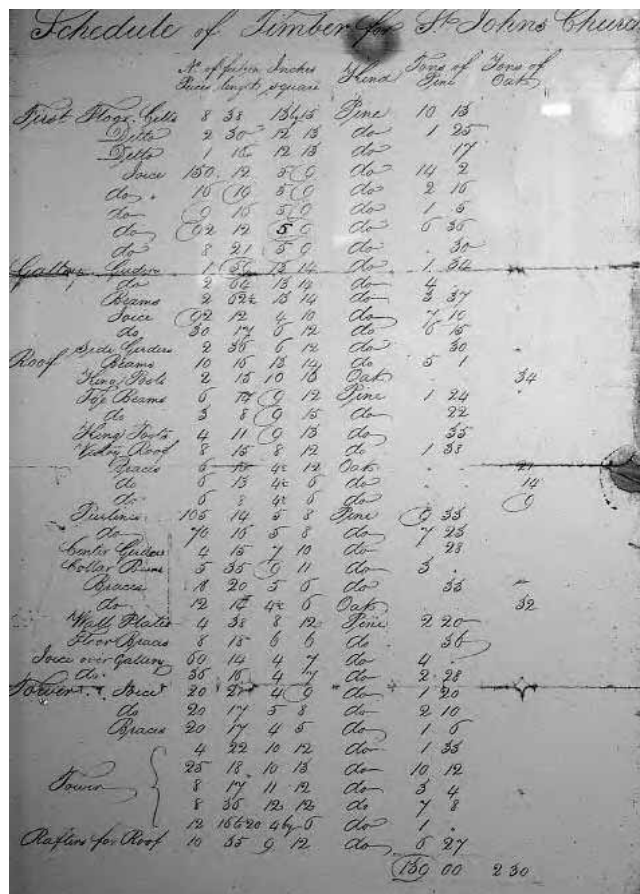 Schedule of Timber for St Johns Church
No. of feet in Inches Kind Tons of Tons of
Pieces length square Pine Oak
First Floor Cills 8 38 13 by 15 Pine 10 13
Ditto 2 30 12 13 do 1 25
Ditto 1 16 12 13 do 17
Joice 150 12 5 9 do 14 2
do 16 19 5 9 do 2 16
do 9 16 5 9 do 1 5
do 92 12 5 9 do 6 36
do 8 21 5 9 do 30
Gallery Girders 1 13 14 do 1 34
do 2 64 13 14 do 4
Beams 2 62 13 14 do 3 37
Joice 92 12 4 10 do 7 10
do 30 17 6 12 do 6 15
Side Girders 2 36 6 12 do 30
Roof Beams 10 16 13 14 do 5 1
King Posts 2 15 10 13 Oak 34
Top Beams 6 9 12 Pine 1 24
do 3 8 9 15 do 22
King Posts 4 11 9 13 do 35
Roof 8 15 8 12 do 1 38
Braces 6 4 12 Oak
do 6 13 4 6 do 14
do 6 8 4 6 do 9
Purlines 105 14 5 8 Pine 9 33
do 70 16 5 8 do 7 23
Center Girders 4 15 7 10 do 28
Collar Beams 5 35 9 11 do 3
Braces 8 20 5 6 do 33
do 12 4 6 Oak 32
Wall Plates 4 38 8 12 Pine 2 20
Floor Braces 8 18 6 6 do 36
Joice over Gallery 60 14 4 7 do 4
do 36 16 4 7 do 2 28
Tower Joice 20 27 4 9 do 1 20
do 20 17 5 8 do 2 10
Braces 20 17 4 5 do 1 6
4 22 10 12 do 1 33
25 18 10 13 do 10 12
Tower 8 17 11 12 do 3 4
8 36 12 12 do 7 8
12 16 to 20 4 by 6 do 1
Rafters for Roof 10 35 9 12 do 6 27
139 00 2 30